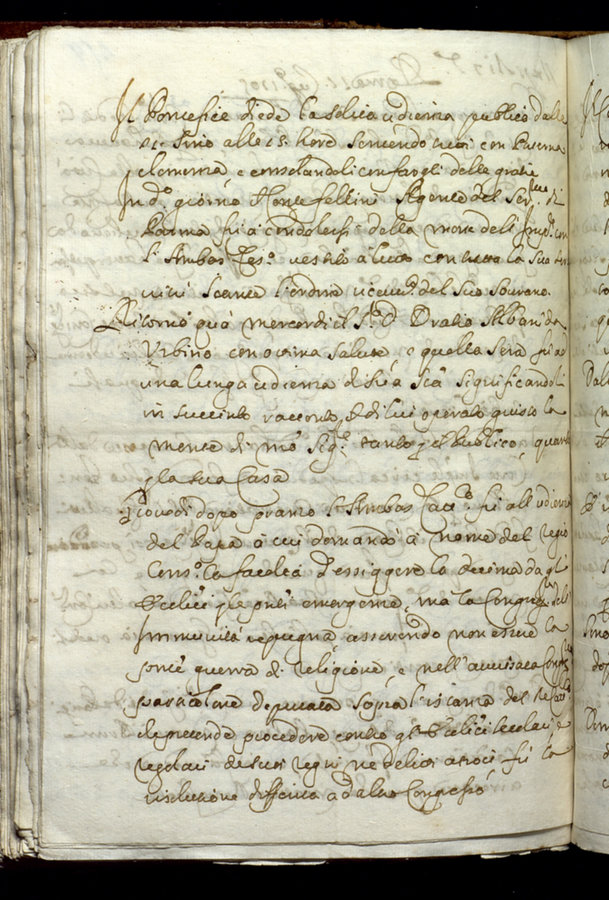 Il Pontefice diede la solita udienza publico dalle
21. sino alle 23. hore sentendo tutti con Paterna
clemenza, e consolandoli con fargli delle gratie
In d.º giorno Montefellini Agente del Ser.mo di
Parma fù a condolersi della morte dell' Imp.re con
l' Ambas. Ces.º vestito a lutto con tutta la sua
tenere l'ordine del suo Sourano
Ritornò quà mercordì il S.r D. Oratio Albani da
Urbino con ottima salute, e quella sera fù ad
una lunga udienza di Sua S.tà significandoli
in succinto racconto di lui operato giusto la
mente di mo. Sig.re tanto p. il publico, quanto
p la sua Casa
Giovedì dopo pranzo l'Ambas. fù all' udienza
del Papa à cui domandò à nome del Regio
Cons.º la facoltà d'essiggere la decima dagli
Eccl.ci p le p.nti emergenze, ma la Congreg.ne dell'
Immunità repugna, asserendo non essere la
guerra di religione, e nell' auuisata Cong.ne
deputata sopra l'istanza del
che pretende procedere contro gl' Eccl.ci secolari, e
regolari de suoi regni ne delitti atroci fù la
risolutione differita ad altro Congresso